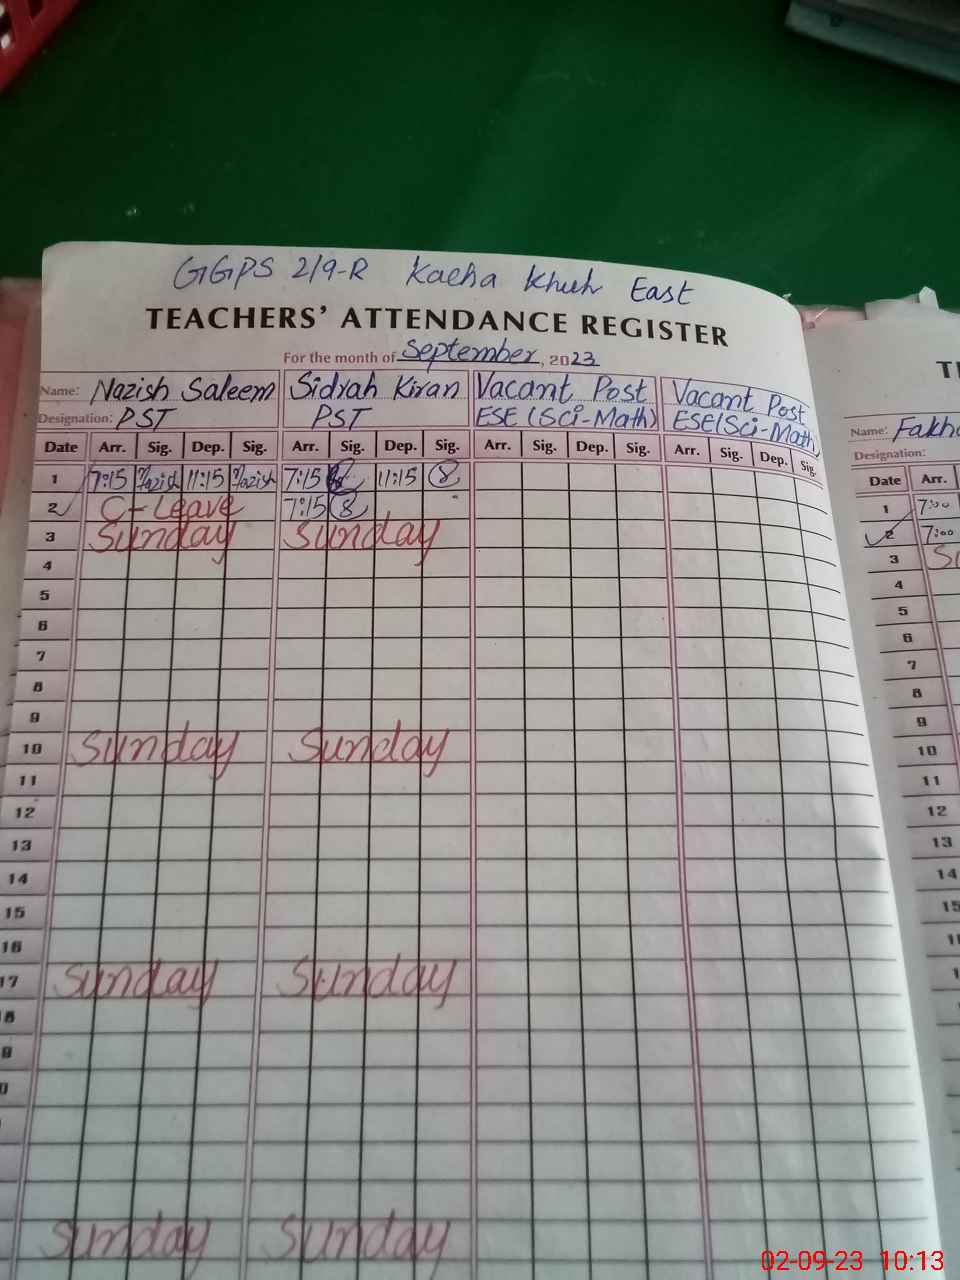 GGPS 2/9-R Kacha Khuh East
TEACHERS' ATTENDANCE REGISTER
For the month of September, 2023
Name: Nazish Saleem Sidrah Kiran Vacant Post Vacant Post
Designation: PST PST ESE (Sci-Math) ESE(Sci-Math)
Date Arr. Sig. Dep. Sig. Arr. Sig. Dep. Sig. Arr. Sig. Dep. Sig. Arr. Sig. Dep. Sig.
1 7:15 Nazish 11:15 Nazish 7:15 11:15
2 C-Leave 7:15
3 Sunday Sunday
4
5
6
7
8
9
10 Sunday Sunday
11
12
13
14
15
16
17 Sunday Sunday
18
Sunday Sunday
Name: Fakh
Designation:
Date Arr.
1 7:00
2 7:00
3 Su
4
5
6
7
8
9
10
11
12
13
14
15
02-09-23 10:13